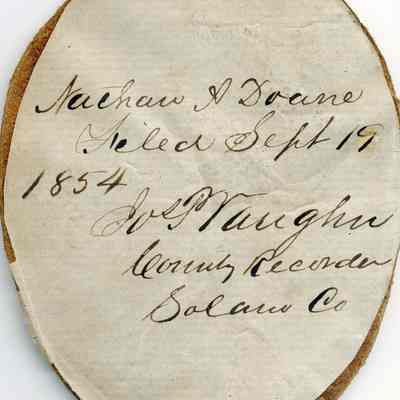 Nathan A Doane
Filed Sept 19
1854
Jos P Vaughn
County Recorder
Solano Co